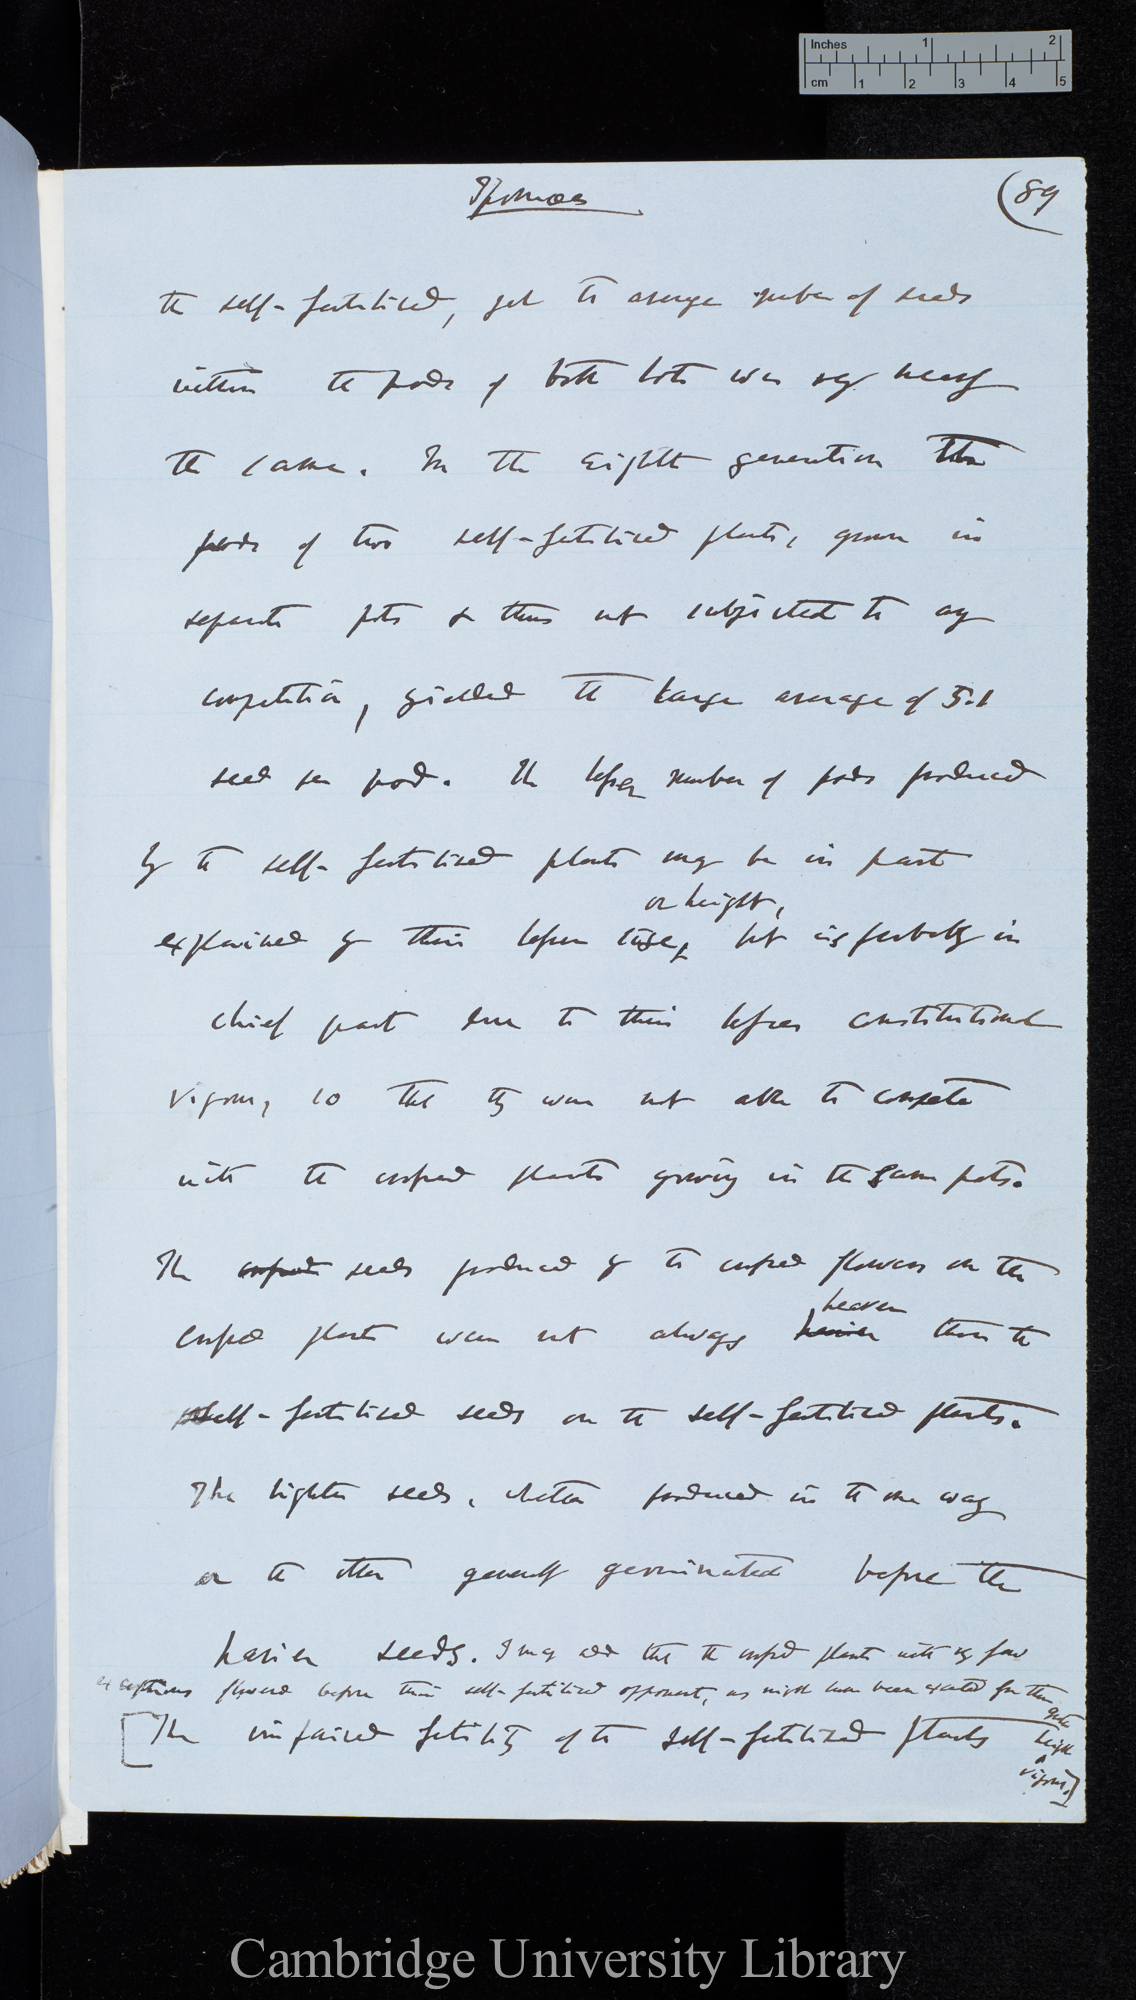 Inches 1 2
cm 1 2 3 4 5
Ipomœa
(89
the self-fertilised, yet the average number of seeds
within the pods of both lots was very nearly
the same. In the eighth generation the
pods of two self-fertilised plants, grown in
separate pots & thus not subjected to any
competition, yielded the large average of 5.1
seed per pod. The lesser number of pods produced
by the self-fertilised plants may be in part
or height,
explained by their lesser size, but is probably in
chief part due to their lesser constitutional
vigour, so that they were not able to compete
with the crossed plants growing in the same pots.
The crossed seeds produced by the crossed flowers on the
heavier
crossed plants were not always heavier than the
self-fertilised seeds on the self-fertilised plants.
The lighter seeds, whether produced in the one way
or the other generally germinated before the
heavier seeds. I may add that the crossed plants with very few
exceptions flowered before their self-fertilised opponents, as might have been expected from their greater
height & vigour.]
[The impaired fertility of the self-fertilised plants
Cambridge University Library